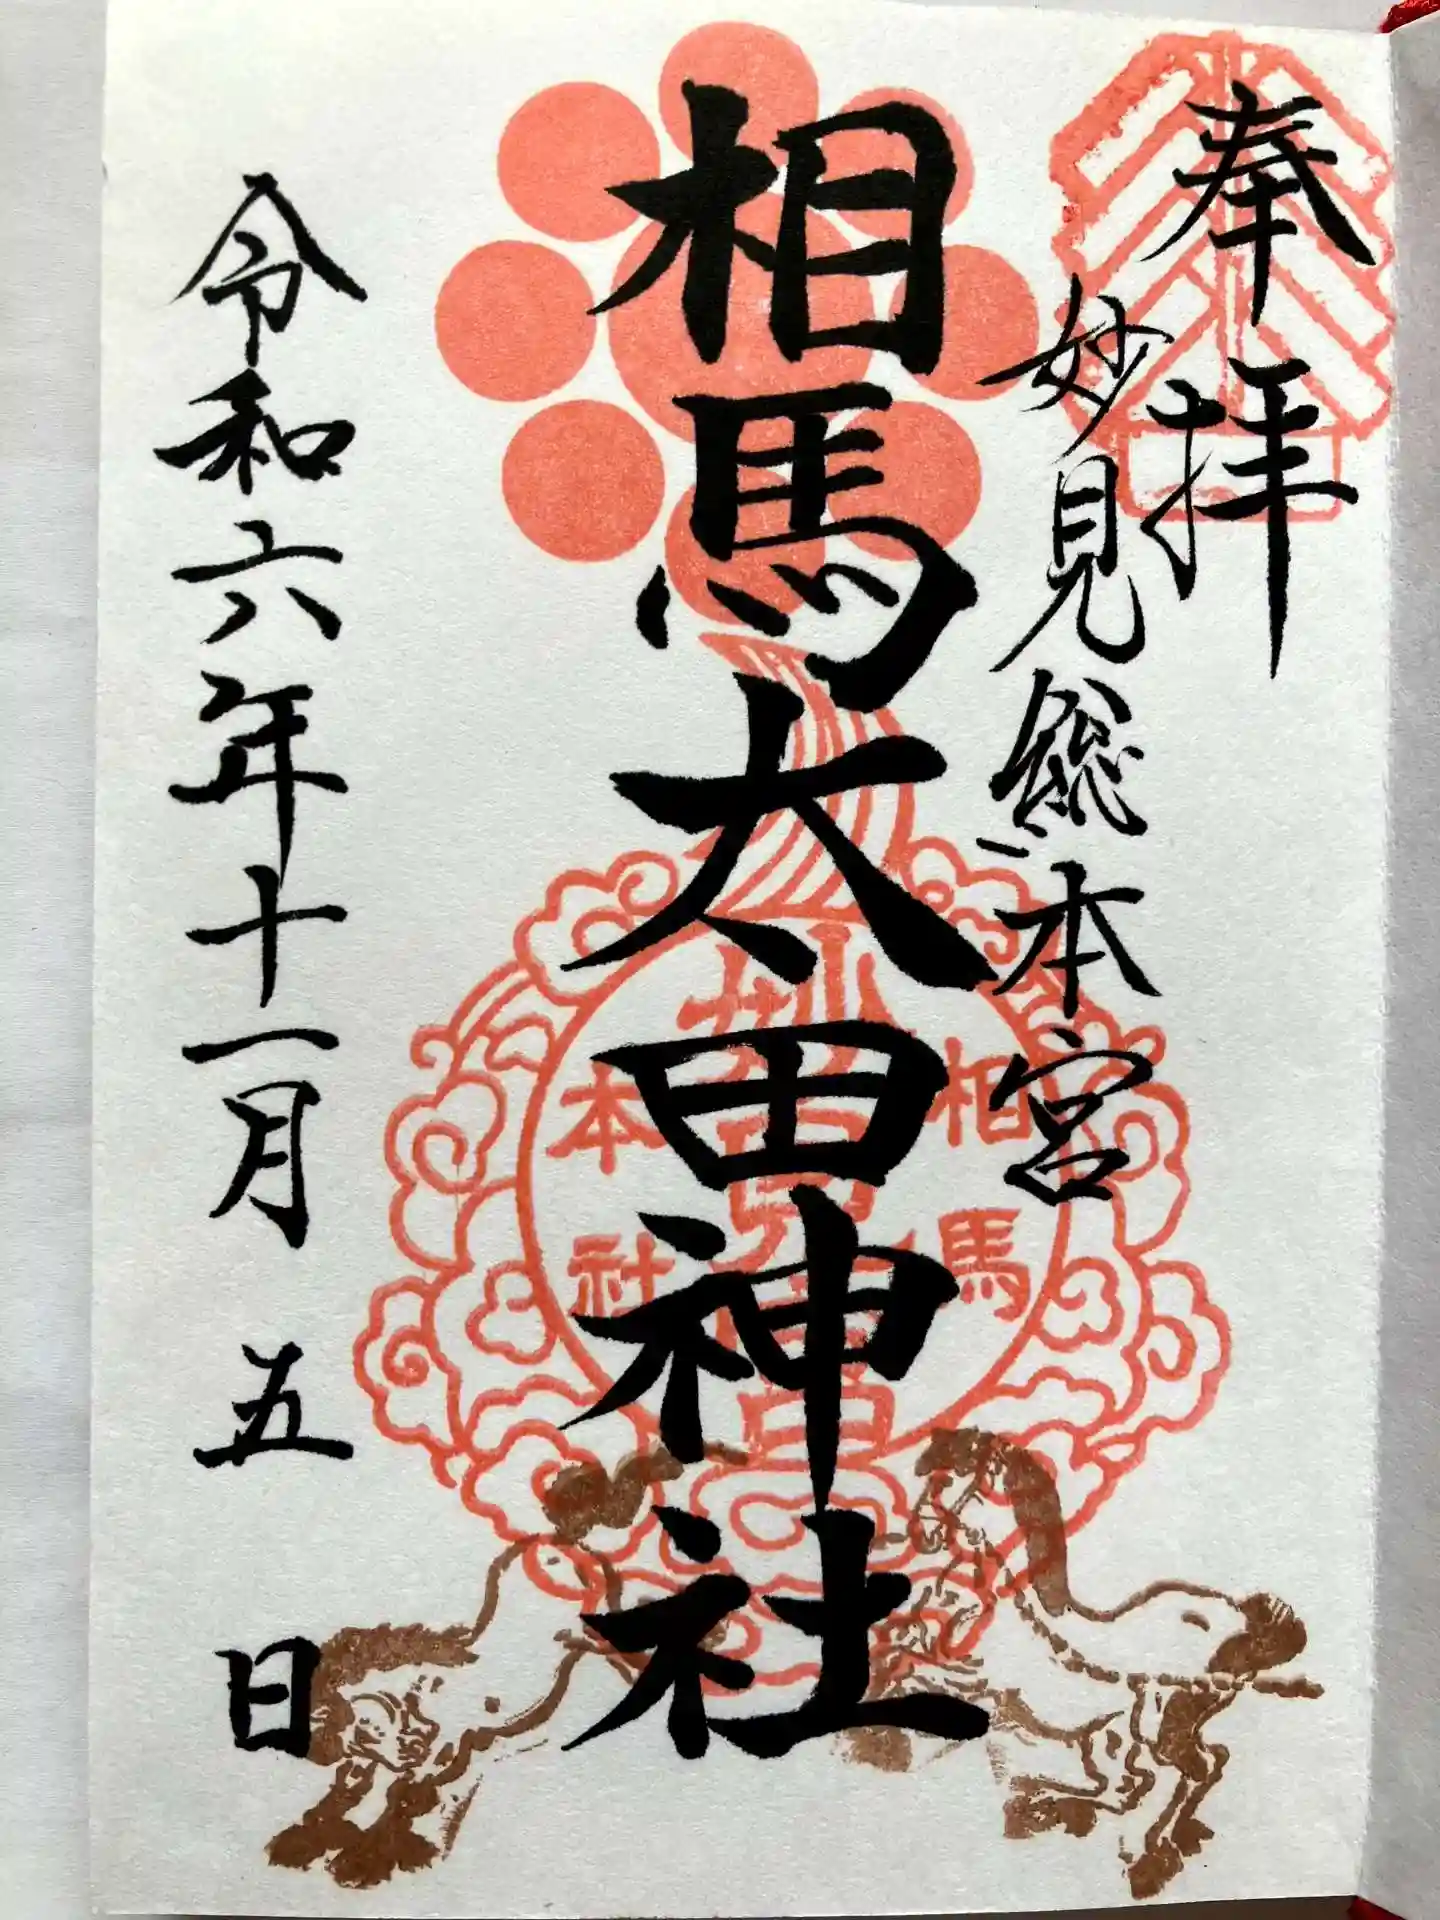 奉拝
妙見総本宮
相馬太田神社
令和六年十一月五日
相馬
妙見
本社